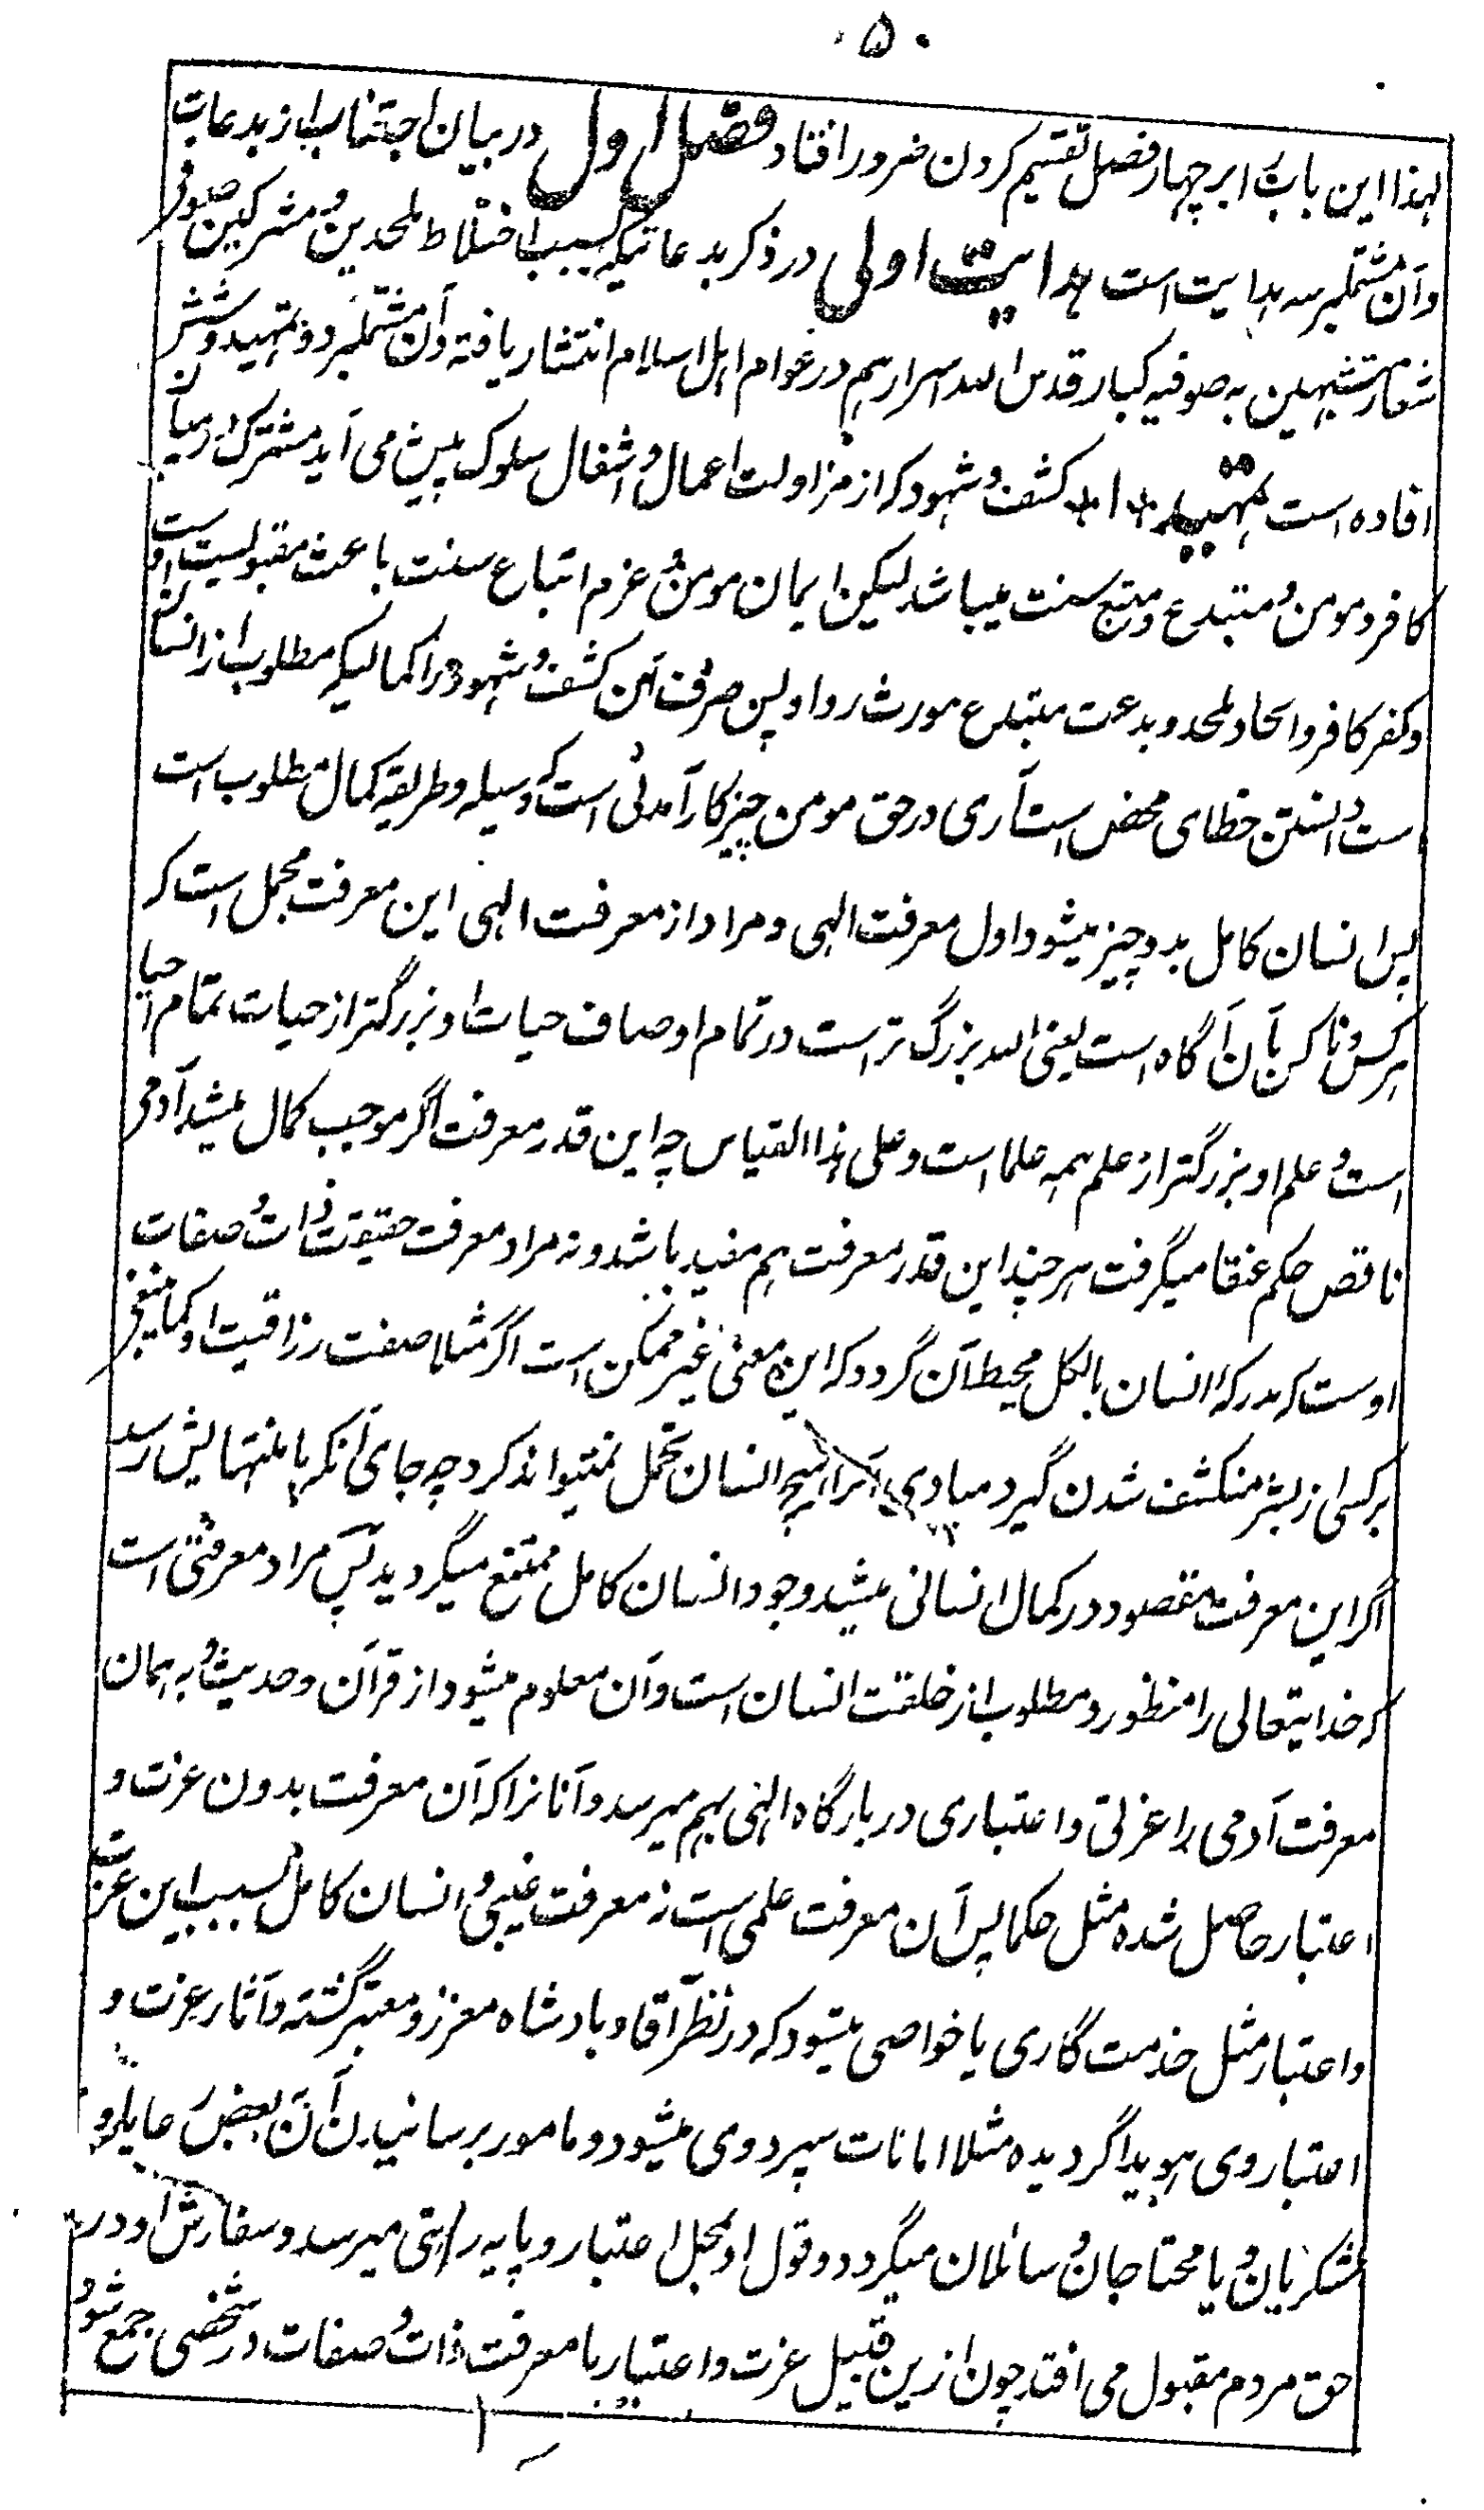 ۵۰
لہذا این باب را بر چہار فصل تقسیم کردن ضرور افتاد فصل اول در بیان اجتناب از بدعات
و آن مشتمل بر سہ ہدایت است ہدایت اولی در ذکر بدعاتیکہ بسبب اختلاط ملحدین و مشرکین صوفی
شعار متشبہین بہ صوفیہ کبار قدس اللہ اسرارہم در عوام اہل اسلام انتشار یافتہ و آن مشتمل بر دو تمہید و شش
افادہ است تمہید ۱ کشف و شہود کہ از مزاولت اعمال و اشغال سلوک پیش می آید مشترک درمیان
کافر و مومن و مبتدع و متبع سنت میباشد لیکن ایمان مومن و عزم اتباع سنت باعث مقبولیت اوست
و کفر کافر و الحاد ملحد و بدعت مبتدع مورث رد او پس صرف این کشف و شہود را کمالیکہ مطلوب از انسان
است دانستن خطای محض است آری در حق مومن چیز کار آمدنی است کہ وسیلہ و طریقہ کمال مطلوب است
پس انسان کامل بدو چیز میشود اول معرفت الہی و مراد از معرفت الہی این معرفت مجمل است کہ
ہر کس و ناکس بآن آگاہ است یعنی اللہ بزرگ تر است در تمام اوصاف حیات او بزرگتر از حیات تمام احیا
است و علم او بزرگتر از علم ہمہ علما است و علی ہذا القیاس چہ این قدر معرفت اگر موجب کمال میشد آدمی
ناقص حکم عنقا میگرفت ہر چند این قدر معرفت ہم مفید باشد و نہ مراد معرفت حقیقت ذات و صفات
اوست کہ مدرکہ انسان بالکل محیط آن گردد کہ این معنی غیر ممکن است اگر مثلا صفت رزاقیت او کما ینبغی
بر کسی از بشر منکشف شدن گیرد مبادی آنرا ہیچ انسان تحمل نمیتواند کرد چہ جای آنکہ پا بمنتہایش رسد
اگر این معرفت مقصود در کمال انسانی میشد وجود انسان کامل ممتنع میگردید پس مراد معرفتی است
کہ خدایتعالی را منظور و مطلوب از خلقت انسان است و آن معلوم میشود از قرآن و حدیث و بہ ہمان
معرفت آدمی را عزتی و اعتباری در بارگاہ الہی بہم میرسد و آنانرا کہ آن معرفت بدون عزت و
اعتبار حاصل شدہ مثل حکما پس آن معرفت علمی است نہ معرفت غیبی و انسان کامل بسبب این عزت
و اعتبار مثل خدمت گاری یا خواصی میشود کہ در نظر آقا و بادشاہ معزز و معتبر گشتہ و آثار عزت و
اعتبار وی ہویدا گردیدہ مثلا امانات سپرد وی میشود و مامور برسانیدن آن بعض رعایا و
لشکریان و یا محتاجان و سائلان میگردد و قول او بمحل اعتبار و پایہ راستی میرسد و سفارش او در
حق مردم مقبول می افتد چون ازین قبیل عزت و اعتبار با معرفت ذات و صفات در شخصی جمع شود